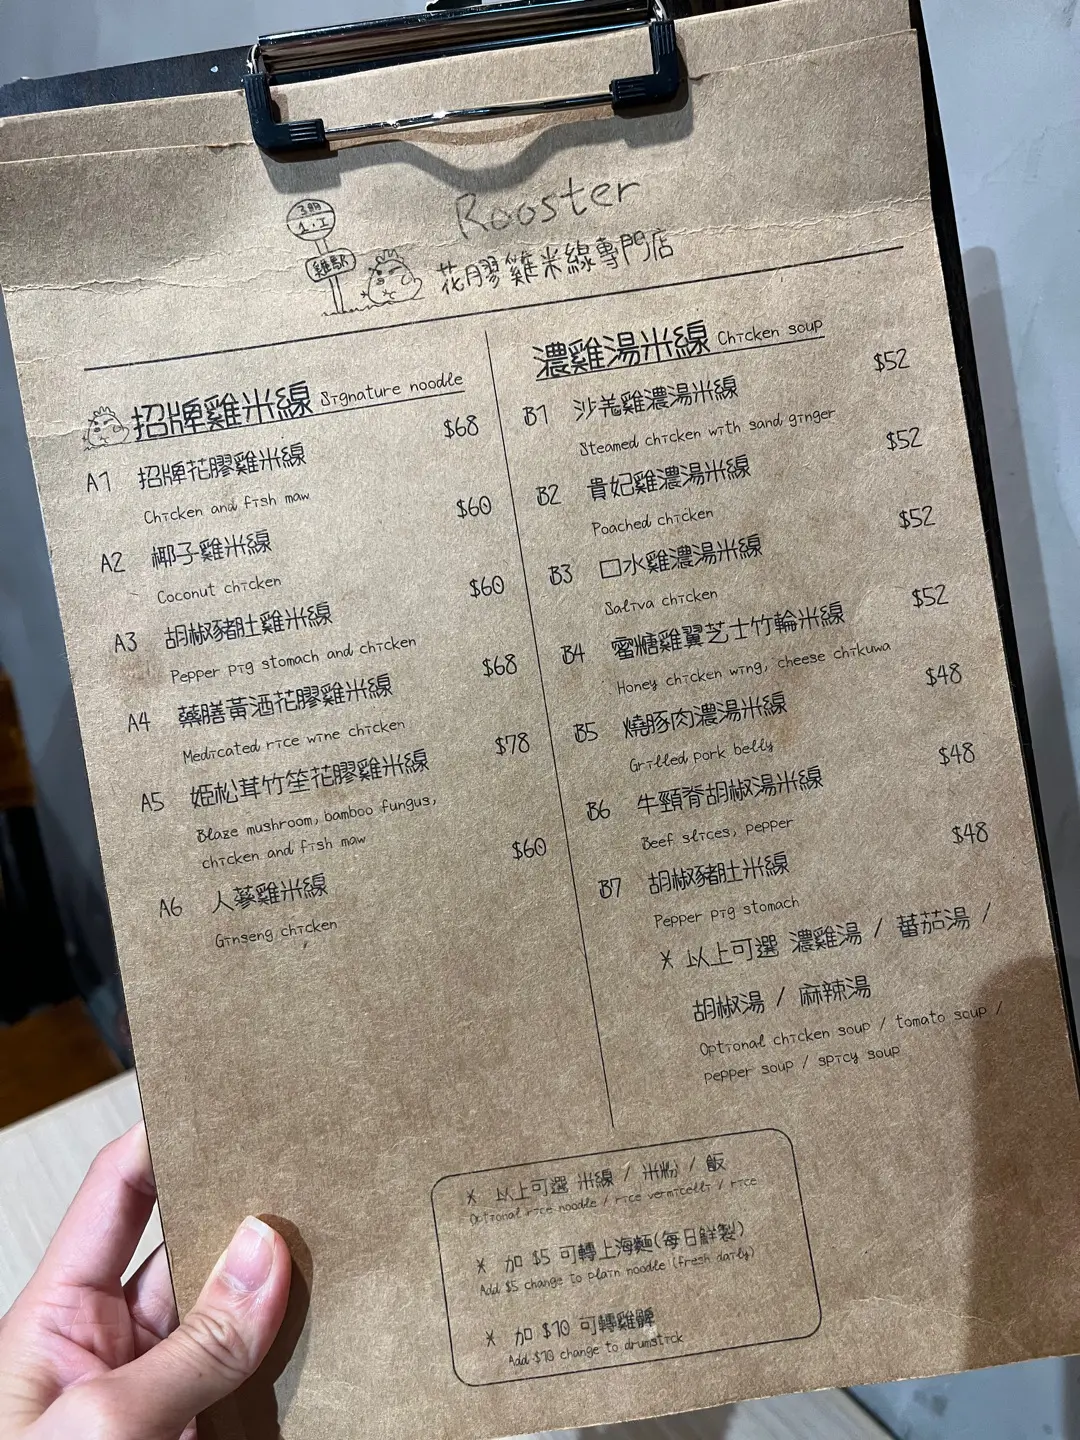 Rooster
雞駅
花膠雞米線專門店
招牌雞米線 Signature noodle
A1 招牌花膠雞米線 $68
Chicken and fish maw
A2 椰子雞米線 $60
Coconut chicken
A3 胡椒豬肚雞米線 $60
Pepper pig stomach and chicken
A4 藥膳黃酒花膠雞米線 $68
Medicated rice wine chicken
A5 姬松茸竹笙花膠雞米線 $78
Blaze mushroom, bamboo fungus,
chicken and fish maw
A6 人蔘雞米線 $60
Ginseng chicken
濃雞湯米線 Chicken soup
B1 沙羌雞濃湯米線 $52
Steamed chicken with sand ginger
B2 貴妃雞濃湯米線 $52
Poached chicken
B3 口水雞濃湯米線 $52
Saliva chicken
B4 蜜糖雞翼芝士竹輪米線 $52
Honey chicken wing, cheese chikuwa
B5 燒豚肉濃湯米線 $48
Grilled pork belly
B6 牛頸脊胡椒湯米線 $48
Beef slices, pepper
B7 胡椒豬肚米線 $48
Pepper pig stomach
* 以上可選 濃雞湯 / 蕃茄湯 /
胡椒湯 / 麻辣湯
Optional chicken soup / tomato soup /
pepper soup / spicy soup
* 以上可選 米線 / 米粉 / 飯
Optional rice noodle / rice vermicelli / rice
* 加 $5 可轉上海麵(每日鮮製)
Add $5 change to plain noodle (fresh daily)
* 加 $10 可轉雞髀
Add $10 change to drumstick